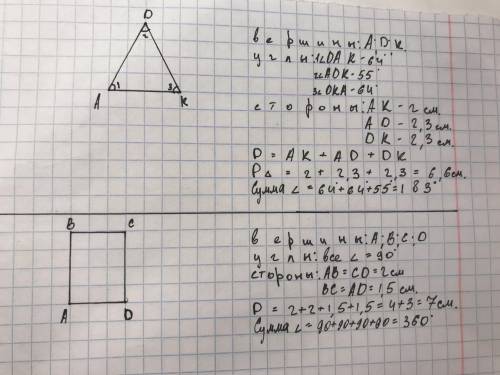 D
2
A 1 3 K
вершины: A; D; K.
углы: 1∠DAK - 64°
2∠ADK - 55°
3∠DKA - 64°
стороны: AK - 2 см.
AD - 2,3 см.
DK - 2,3 см.
P = AK + AD + DK
P△ = 2 + 2,3 + 2,3 = 6,6 см.
Сумма ∠ = 64° + 64° + 55° = 183°
B C
A D
вершины: A; B; C; D
углы: все ∠ = 90°
стороны: AB = CD = 2 см
BC = AD = 1,5 см.
P = 2 + 2 + 1,5 + 1,5 = 4 + 3 = 7 см.
Сумма ∠ = 90 + 90 + 90 + 90 = 360°